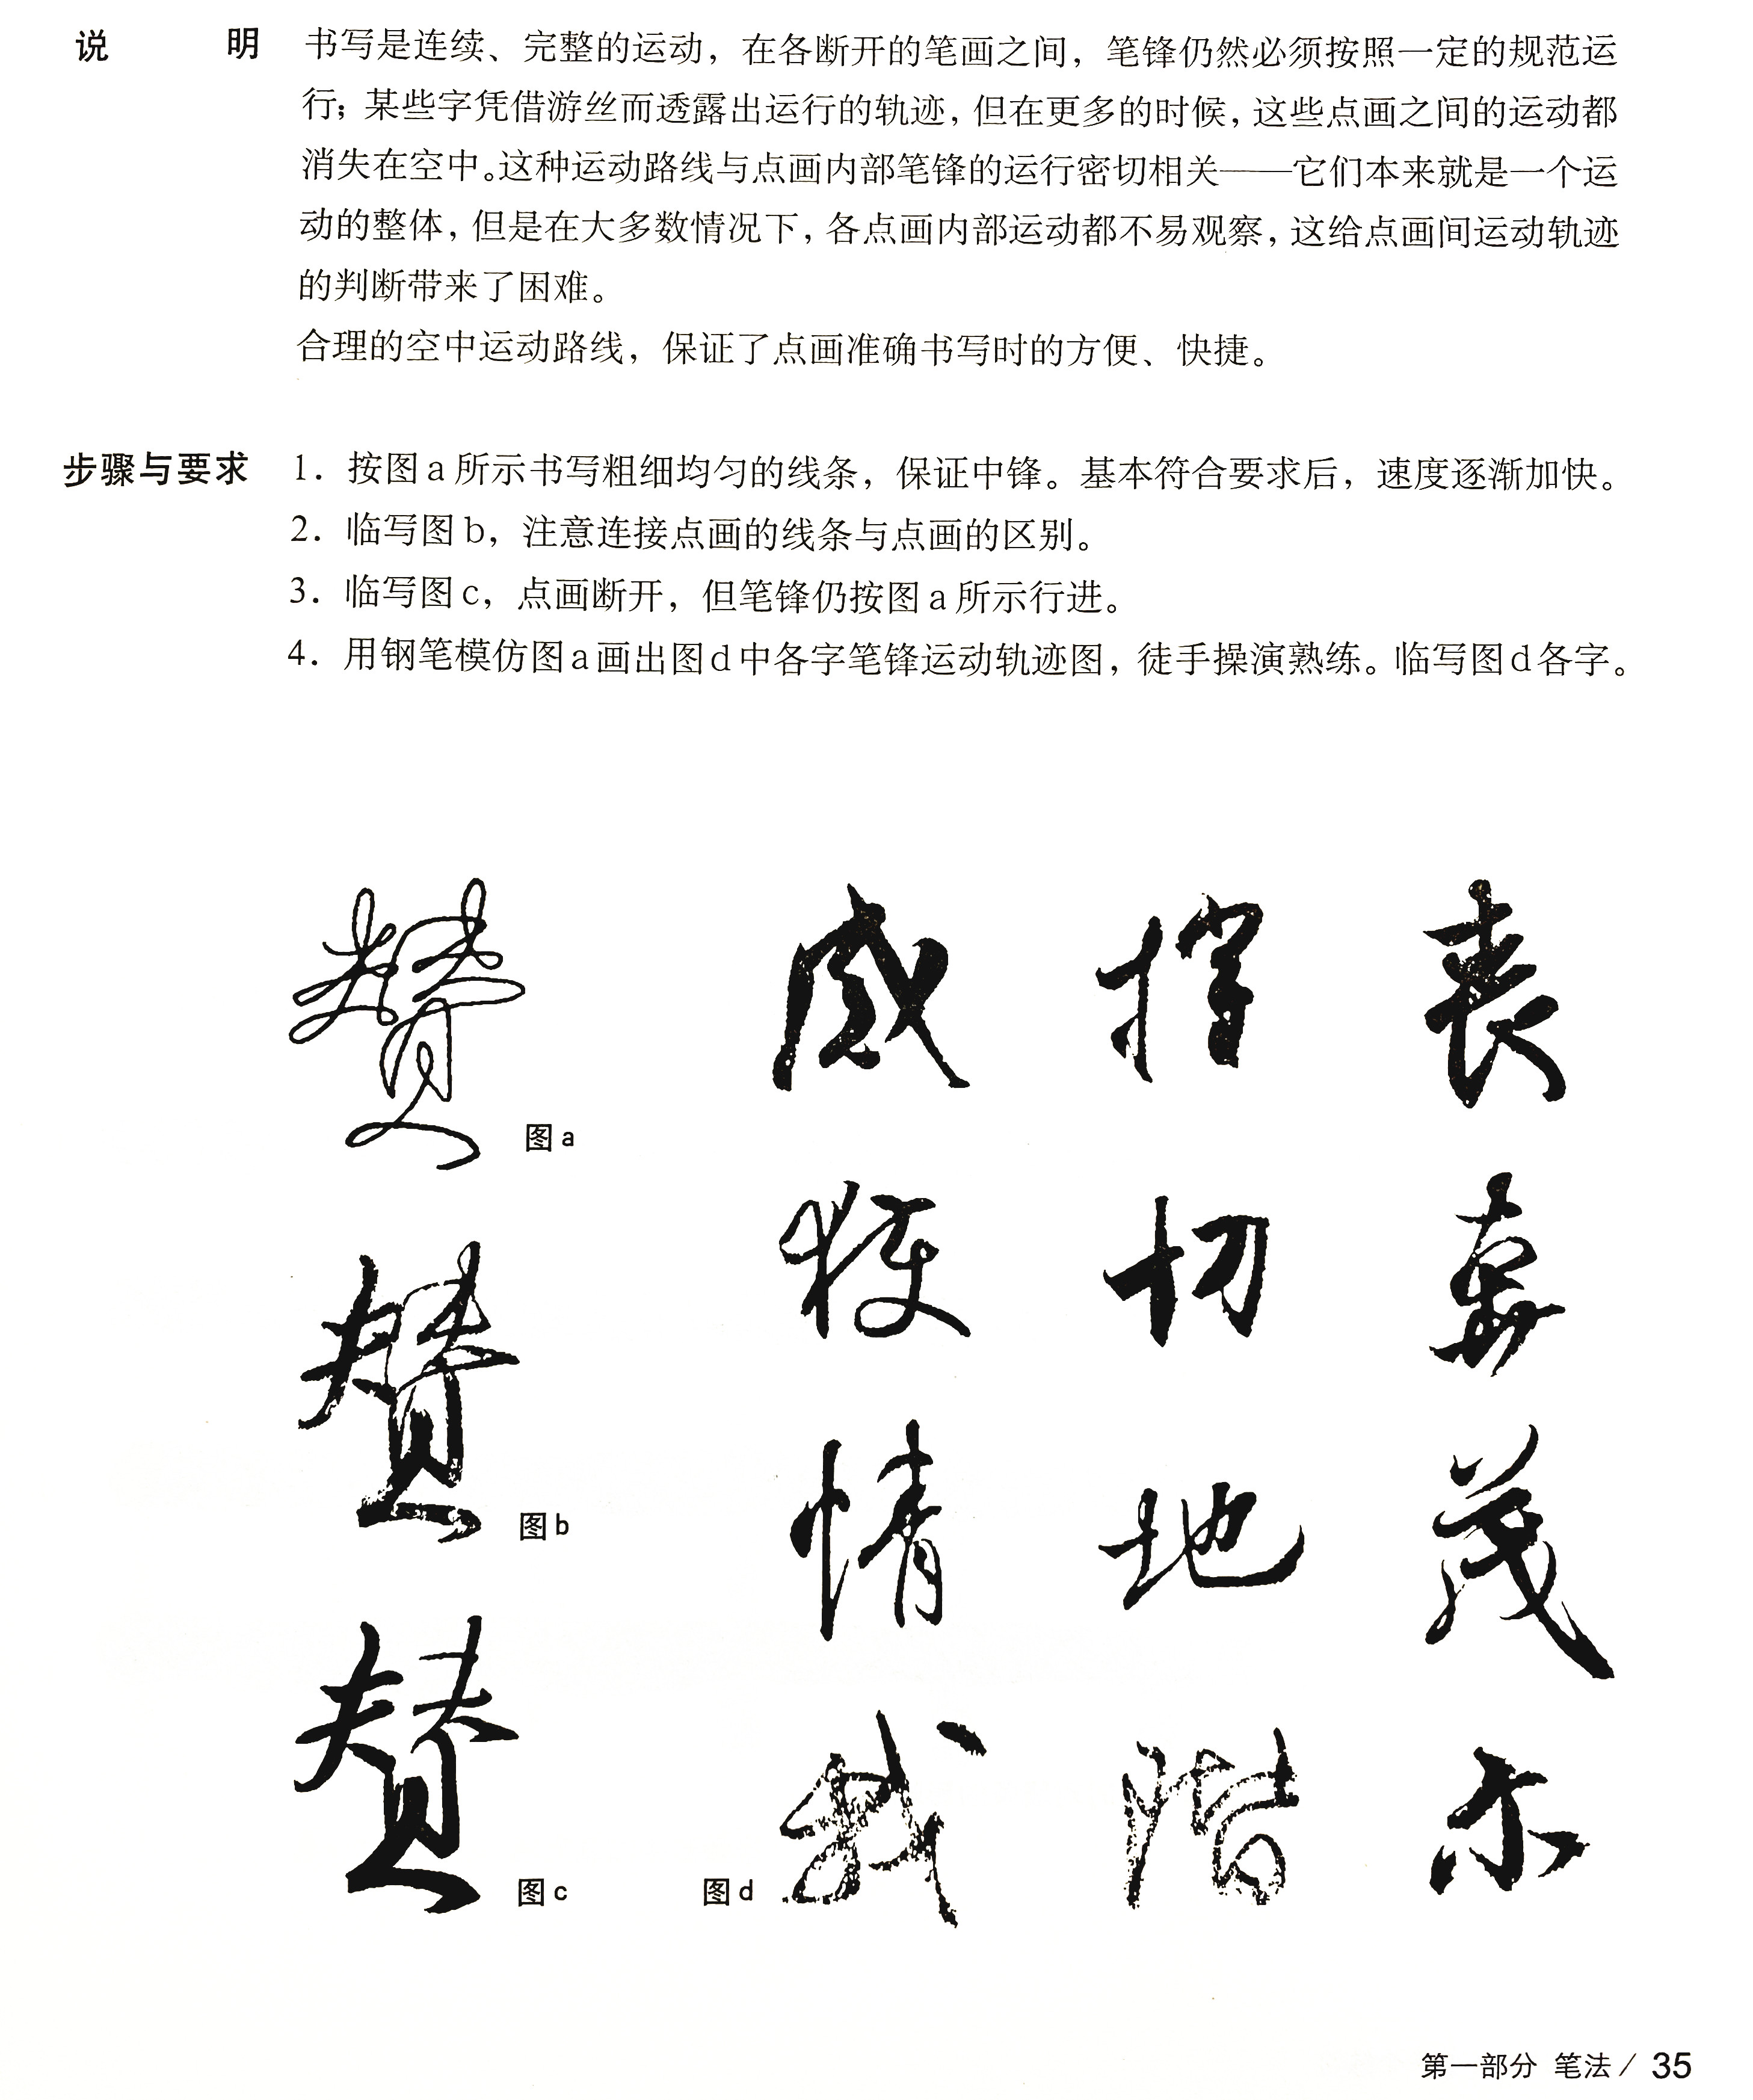 说 明 书写是连续、完整的运动，在各断开的笔画之间，笔锋仍然必须按照一定的规范运
行；某些字凭借游丝而透露出运行的轨迹，但在更多的时候，这些点画之间的运动都
消失在空中。这种运动路线与点画内部笔锋的运行密切相关——它们本来就是一个运
动的整体，但是在大多数情况下，各点画内部运动都不易观察，这给点画间运动轨迹
的判断带来了困难。
合理的空中运动路线，保证了点画准确书写时的方便、快捷。
步骤与要求 1. 按图a所示书写粗细均匀的线条，保证中锋。基本符合要求后，速度逐渐加快。
2. 临写图b，注意连接点画的线条与点画的区别。
3. 临写图c，点画断开，但笔锋仍按图a所示行进。
4. 用钢笔模仿图a画出图d中各字笔锋运动轨迹图，徒手操演熟练。临写图d各字。
赞
图a
赞
图b
赞
图c
情
我
图d
切
地
阶
丧
茂
尔
第一部分 笔法/ 35